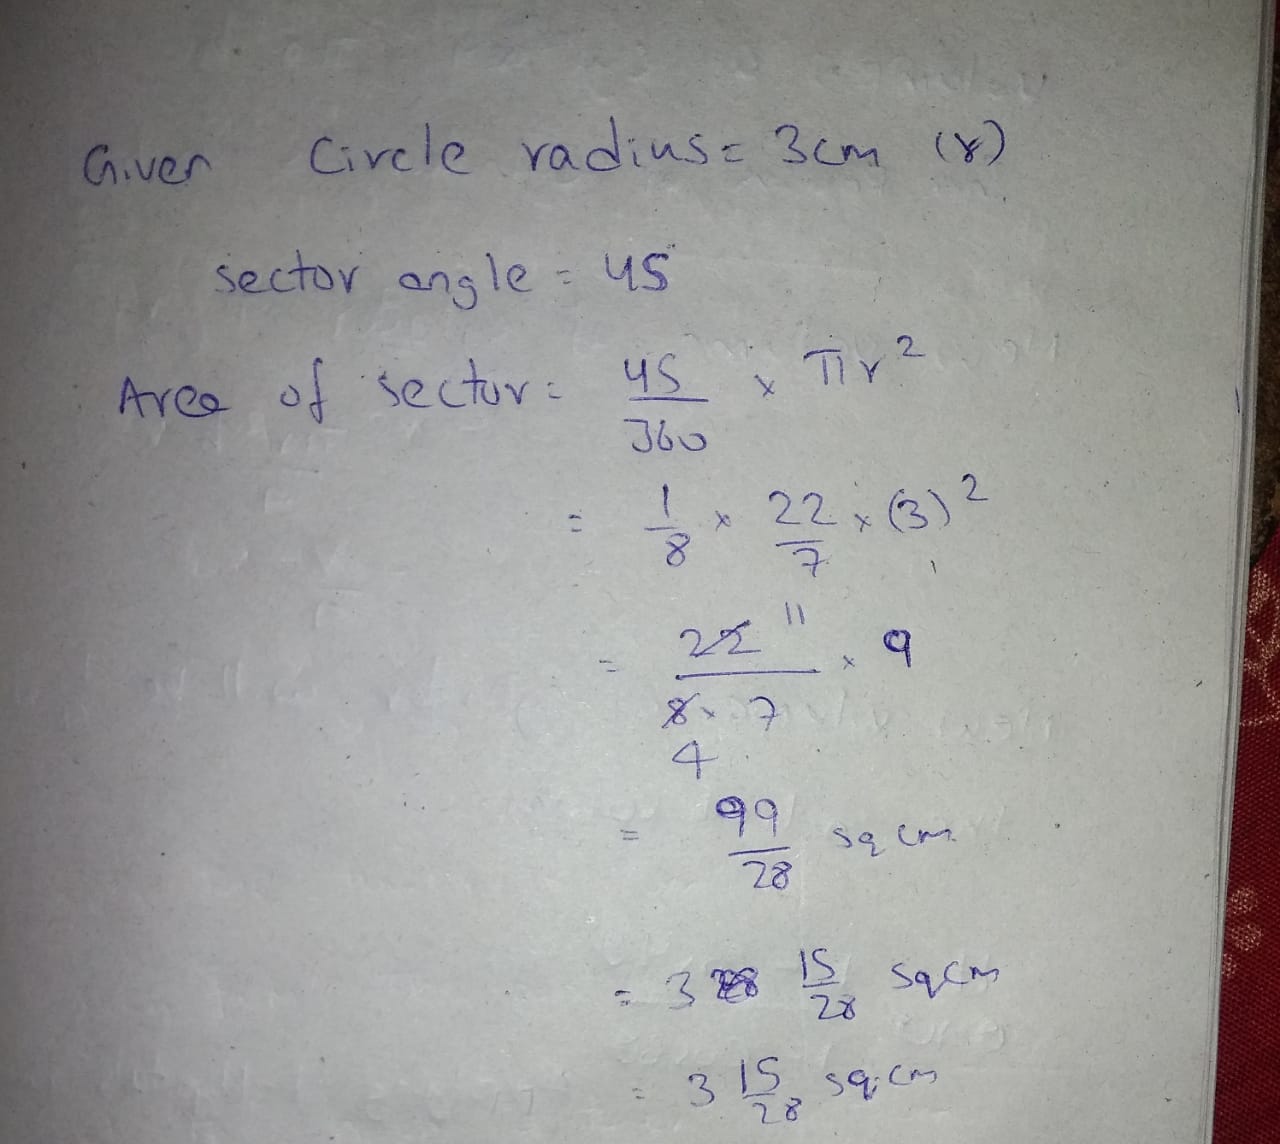 Given Circle radius = 3cm (r)
sector angle = 45°
Area of sector = 45/360 × πr²
= 1/8 × 22/7 × (3)²
= 22 11/8 × 7 × 9
4
= 99/28 sq cm
= 3 15/28 sqcm
= 3 15/28 sq.cm